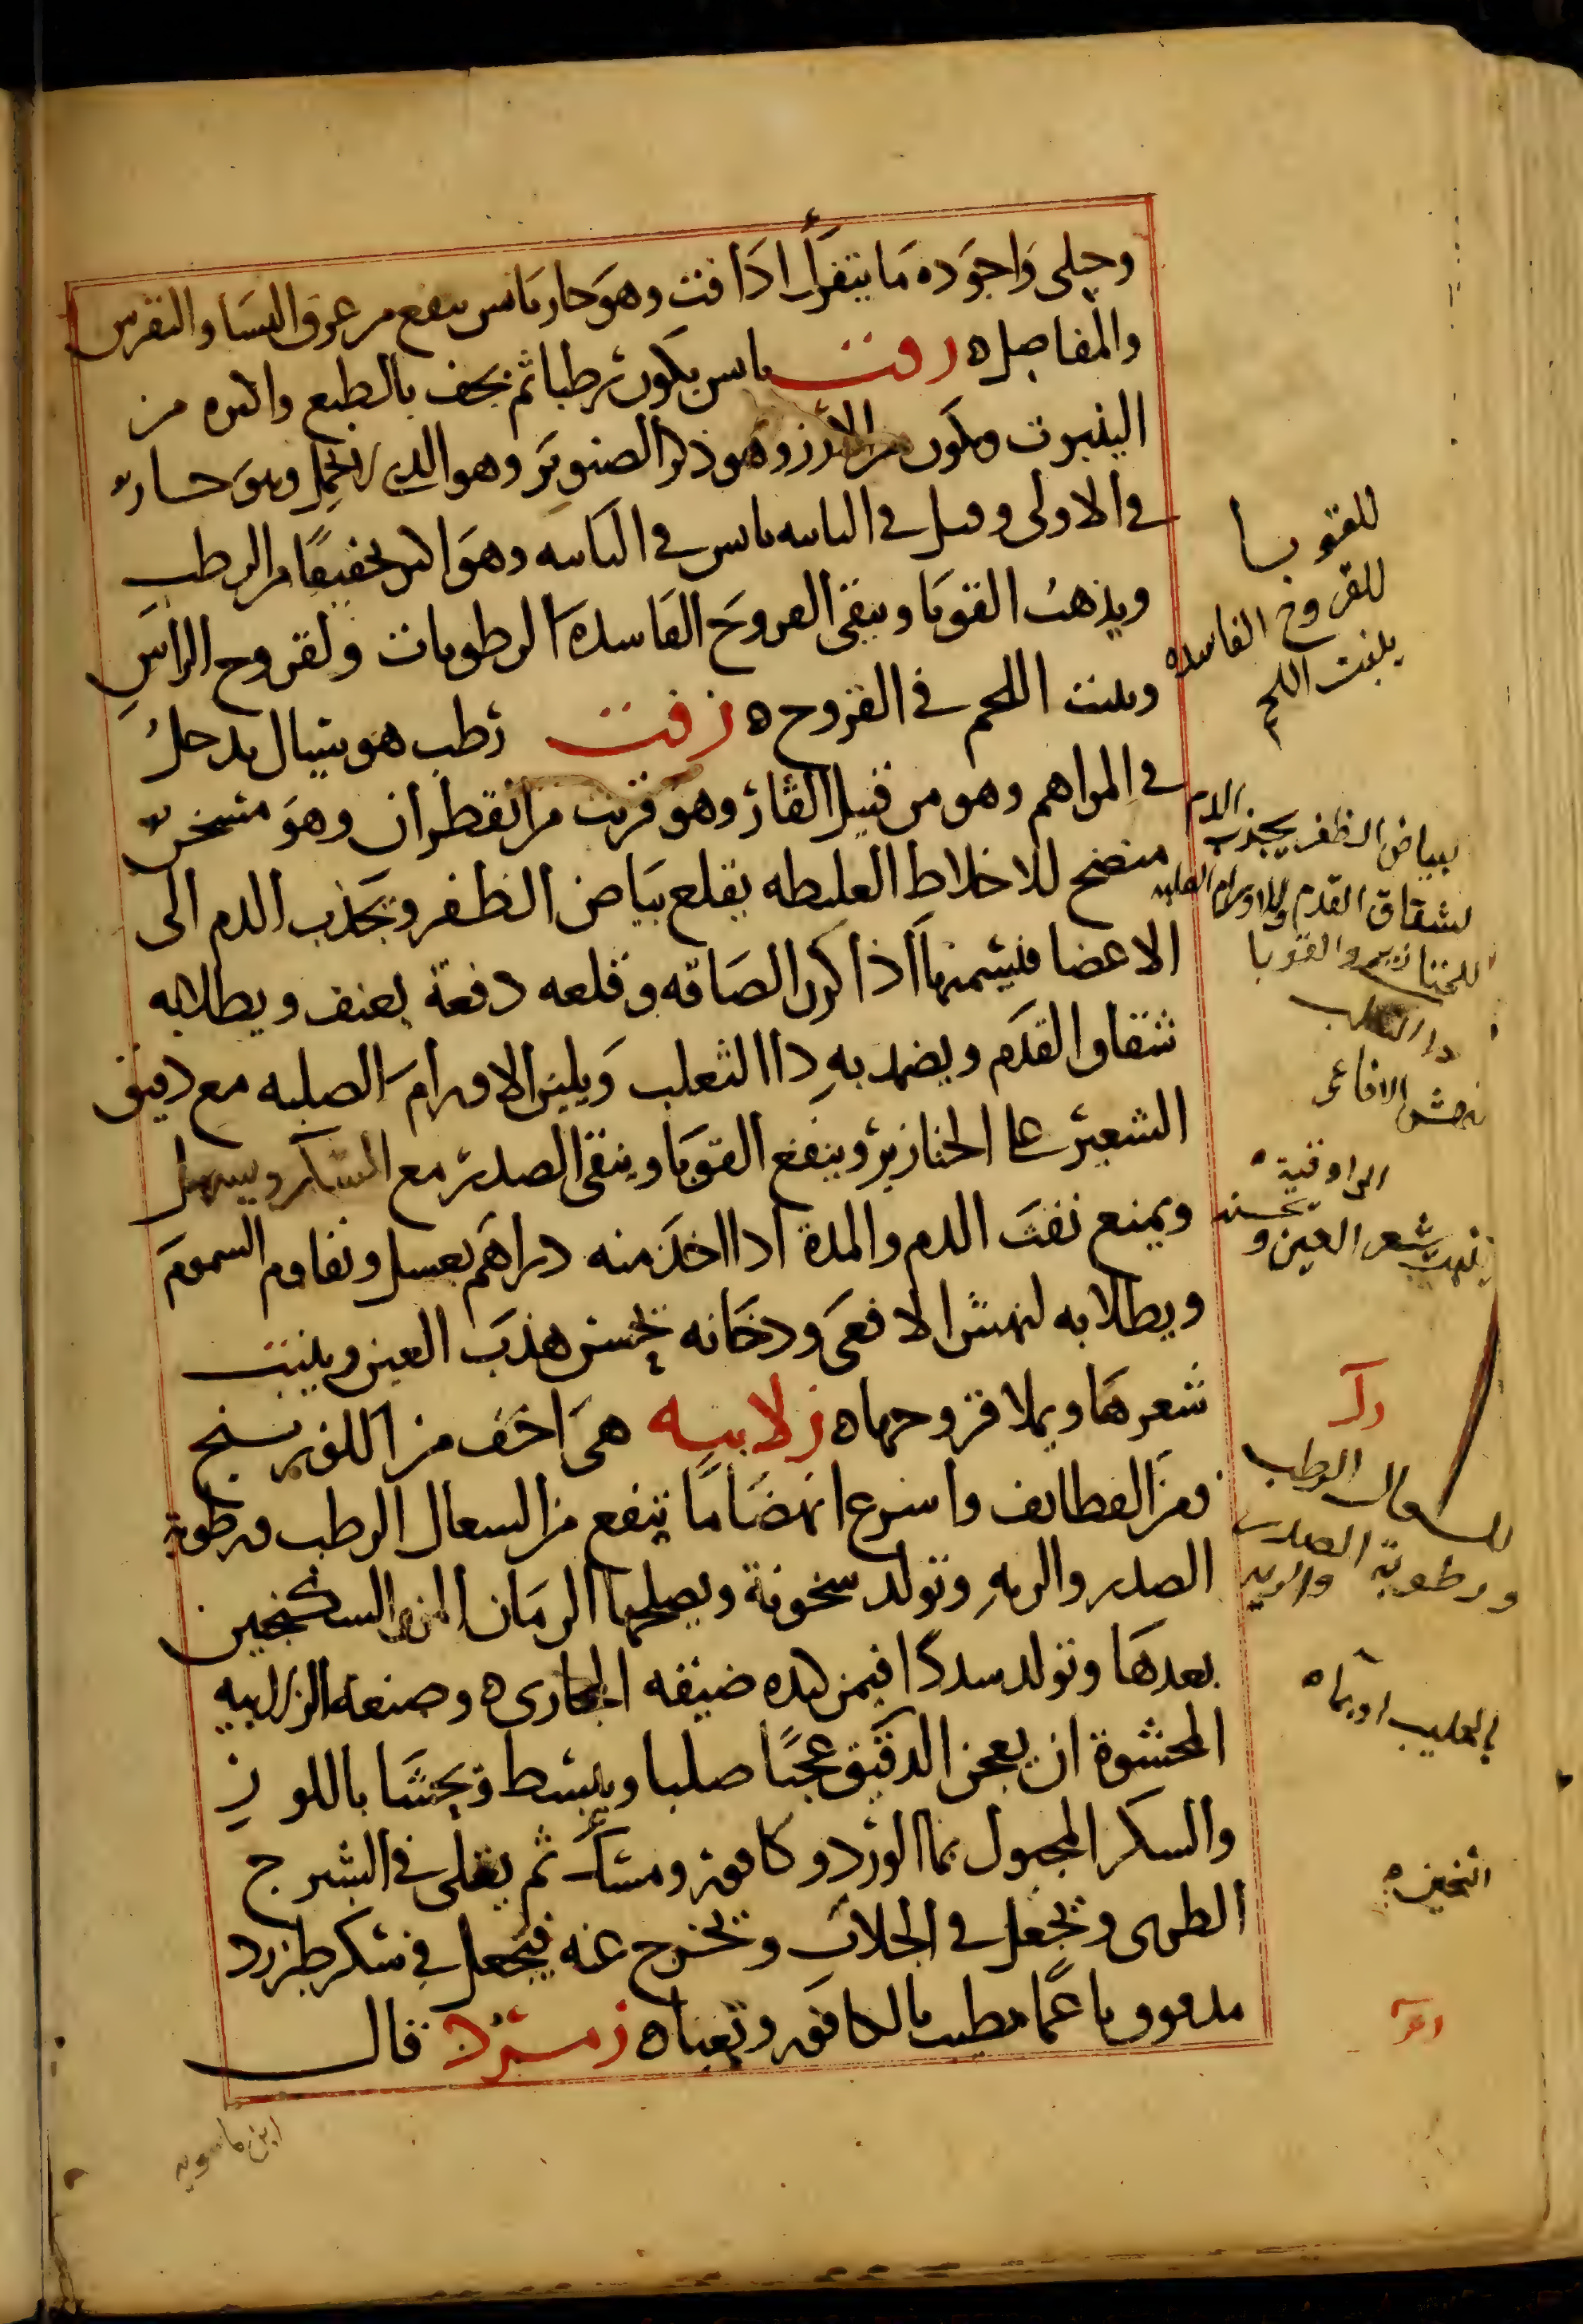 وجلى واجوده ما يتفرك اذا فت وهو حار يابس ينفع من عرق النسا والنقرس
والمفاصل ه زفت يابس يكون رطبا ثم يجف بالطبع واكثره من
الينبوت ويكون من الارز وهو ذكر الصنوبر وهو الذي لا يحمل وهو حار
في الاولى وقيل في الثانيه يابس في الثانيه وهو اكثر تجفيفا من الرطب
ويذهب القوبا وينقى القروح الفاسده الرطوبات ولقروح الراس
وينبت اللحم في القروح ه زفت رطب هو سيال يدخل
في المراهم وهو من قبيل القار وهو قريب من القطران وهو مسخن
منضج للاخلاط الغليظه يقلع بياض الظفر ويجذب الدم الى
الاعضا فيسمنها اذا كرر الصاقه وقلعه دفعة بعنف ويطلا به
شقاق القدم ويضمد به دا الثعلب ويلين الاورام الصلبه مع دقيق
الشعير على الخنازير وينفع القوبا وينقى الصدر مع السكر ويسهل
ويمنع نفث الدم والمدة اذا اخذ منه دراهم بعسل وتقاوم السموم
ويطلا به لنهش الافعى ودخانه يحسن هذب العين وينبت
شعرها ويملا قروحها ه زلابيه هي اخف من اللوزينج
ومن القطايف واسرع انهضاما ينفع من السعال الرطب ورطوبة
الصدر والريه وتولد سخونة ويصلحها الرمان المز والسكنجبين
بعدها وتولد سددا فيمن كبده ضيقه المجارى ه وصنعة الزلابيه
المحشوة ان يعجن الدقيق عجنا صلبا ويبسط ويحشا باللوز
والسكر المجبول بما الورد وكافور ومسك ثم يغلى في الشيرج
الطرى وتجعل في الجلاب وتخرج عنه فيجعل في سكر طبرزد
مدقوق ناعما مطيب بالكافور وتعبا ه زمرد قال
ابن ماسويه
للقوبا
للقروح الفاسده
ينبت اللحم
لبياض الظفر يجذب الدم
لشقاق القدم وللاورام الصلبه
للخنازير والقوبا
دا الثعلب
نهش الافاعى
ينبت شعر العين ويحسنه
للسعال الرطب
ورطوبة الصدر والريه